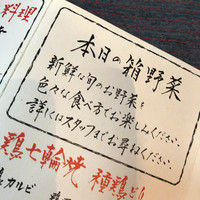 料理
本日の箱野菜
新鮮な旬のお野菜を
色々な食べ方でお楽しみください。
詳しくはスタッフまでお尋ねください。
鶏七輪焼 種鶏
鶏カルビ